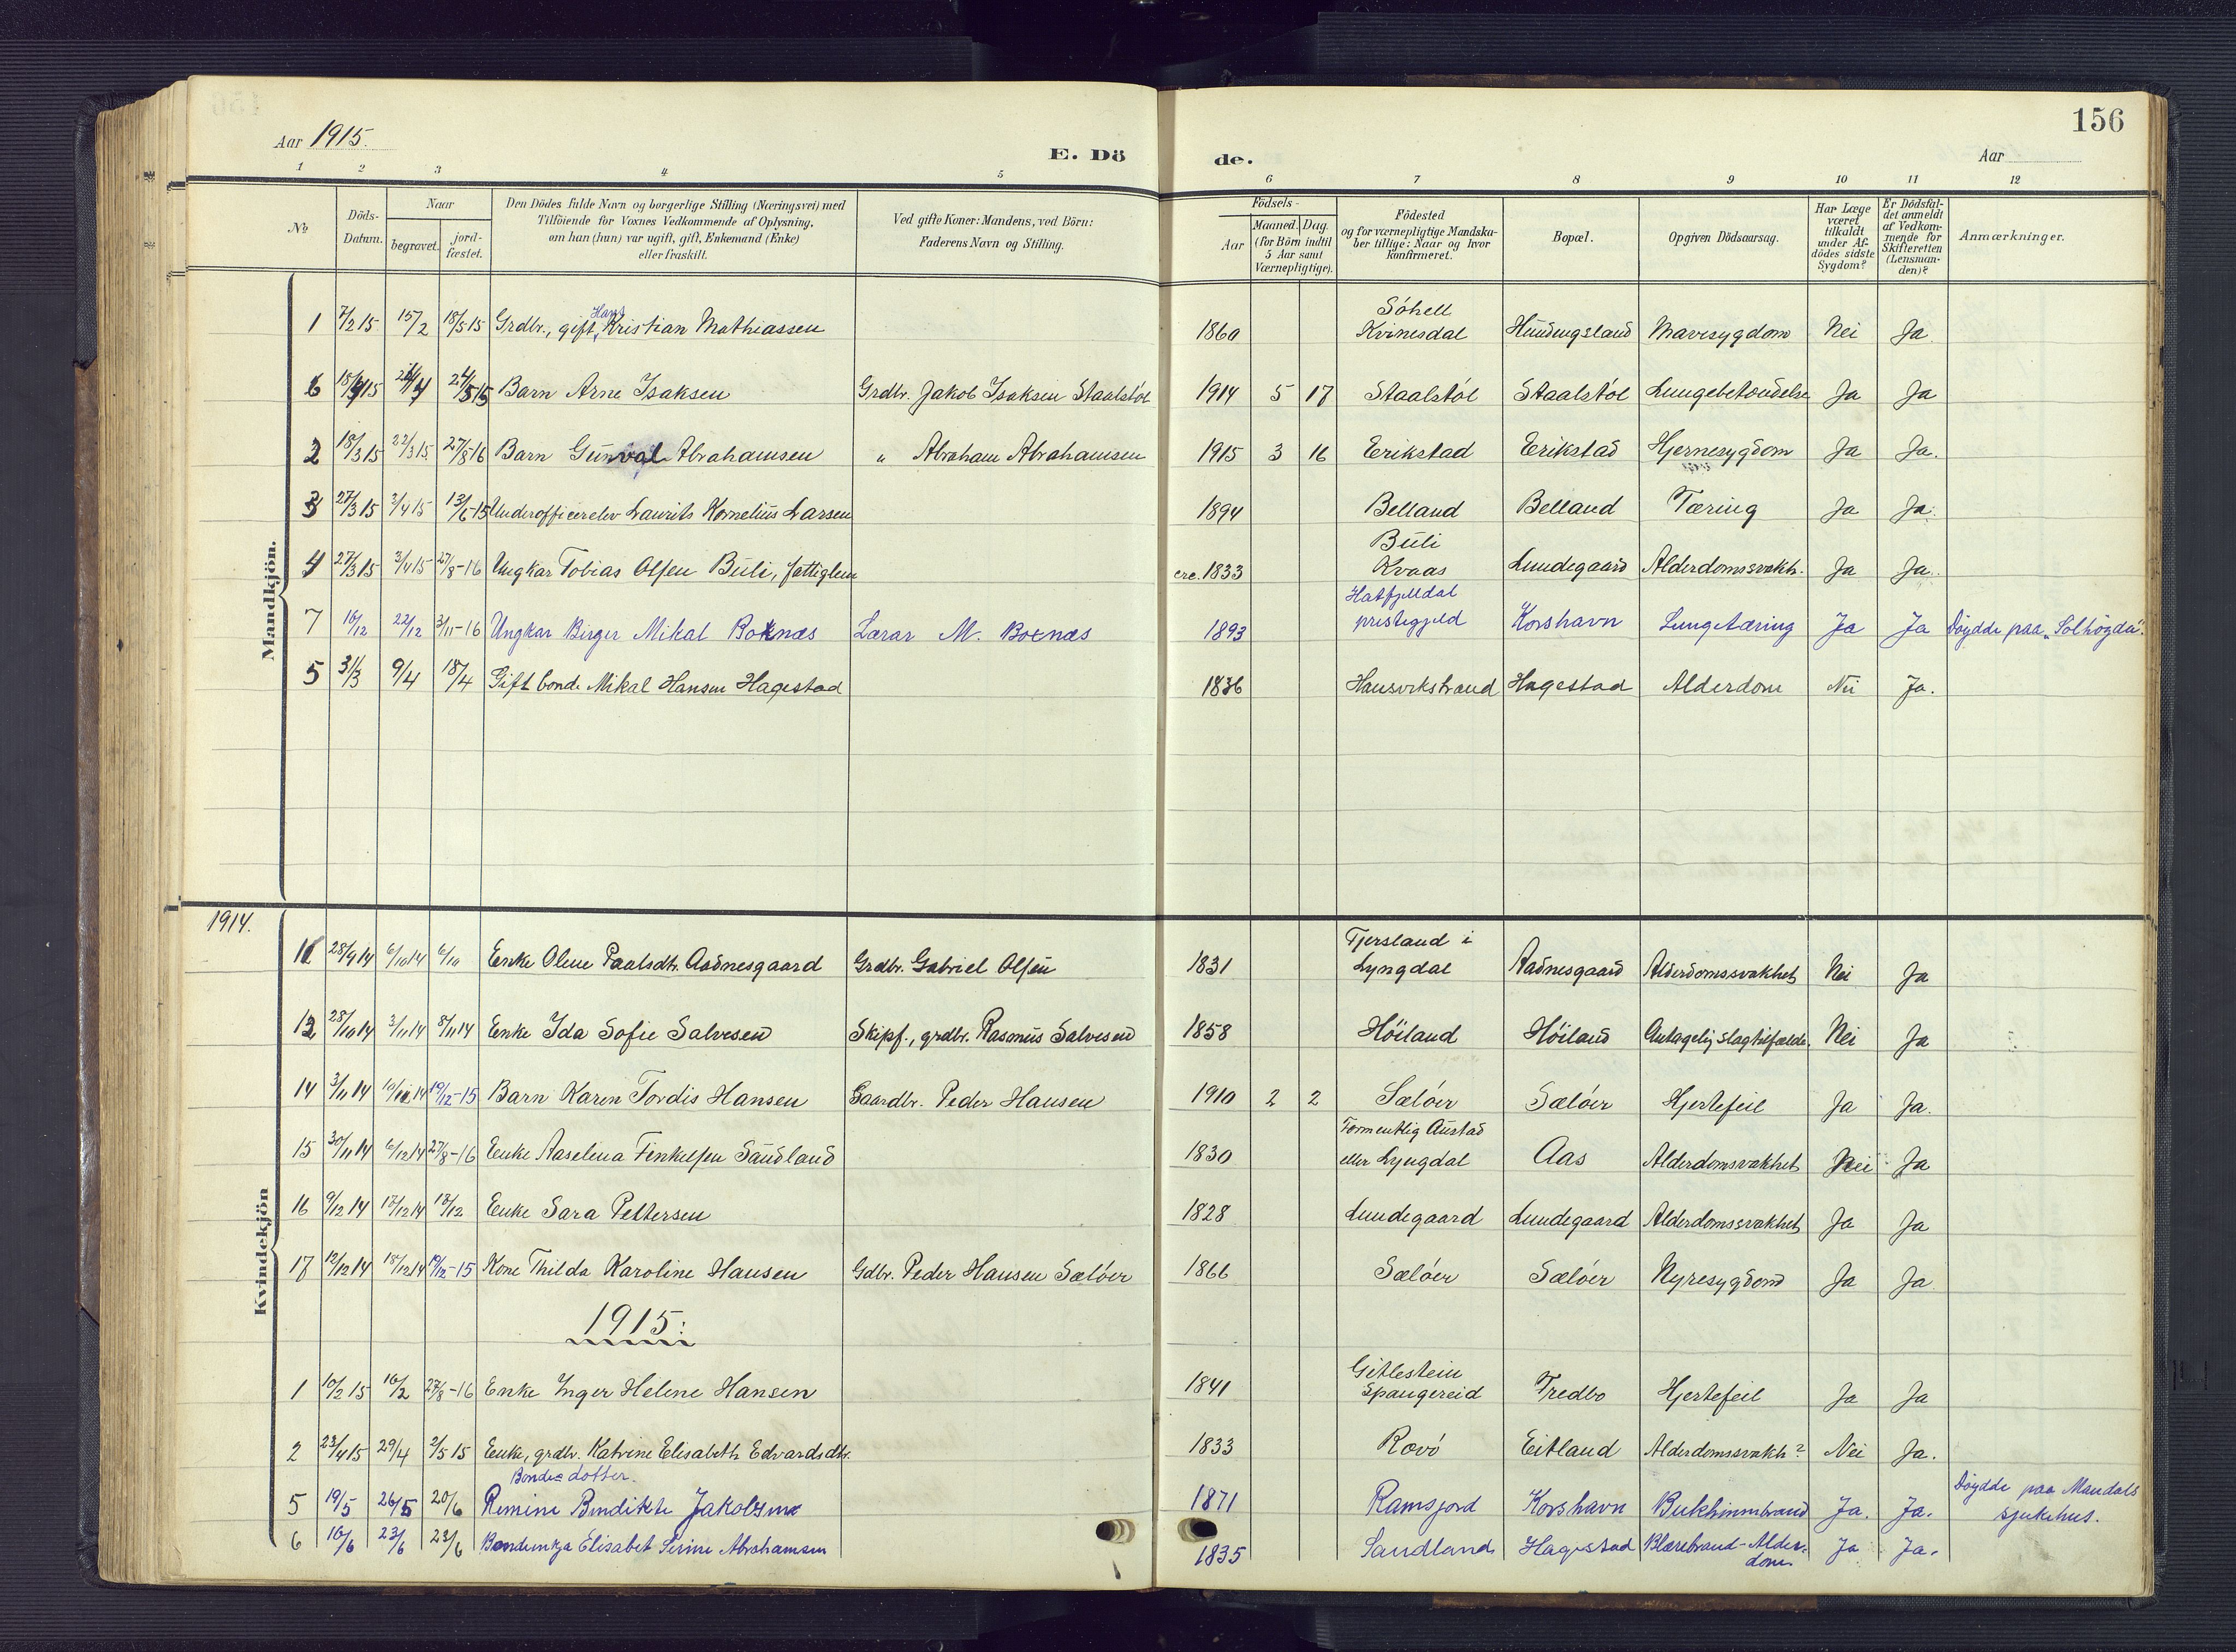 156
Aar 1915.
E. Döde.
Aar
1 2 3 4 5 6 7 8 9 10 11 12
№
Döds-Datum.
Naar
begravet.
jordfæstet.
Den Dödes fulde Navn og borgerlige Stilling (Næringsvei) med
Tilföiende for Voxnes Vedkommende af Oplysning,
om han (hun) var ugift, gift, Enkemand (Enke)
eller fraskilt.
Ved gifte Koner: Mandens, ved Börn:
Faderens Navn og Stilling.
Födsels-
Aar
Maaned. Dag.
(for Börn indtil
5 Aar samt
Værnepligtige).
Födested
og for værnepligtige Mandska-
ber tillige: Naar og hvor
konfirmeret.
Bopæl.
Opgiven Dödsaarsag.
Har Læge
været
tilkaldt
under Af-
dödes sidste
Sygdom?
Er Dödsfal-
det anmeldt
af Vedkom-
mende for
Skifteretten
(Lensman-
den)?
Anmærkninger.
Mandkjön.
1 7/2 15 15/2 18/5 15 Grdbr., gift, Hans Kristian Mathiassen 1860 Söhell Kvinesdal Hundingsland Mavesygdom Nei Ja.
6 18/4 15 24/4 24/5 15 Barn Arne Isaksen Grdbr. Jakob Isaksen Staalstöl 1914 5 17 Staalstöl Staalstöl Lungebetændelse Ja Ja
2 18/3 15 22/3 15. 27/8 16 Barn Gunval Abrahamsen " Abraham Abrahamsen 1915 3 16 Eerikstad Eerikstad Hjernesygdom Ja Ja.
3 27/3 15 3/4 15 13/6-15 Underofficerelev Laurits Kornelius Larsen 1894 Belland Belland Tæring Ja Ja.
4 27/3 15 3/4 15 27/8-16 Ungkar Tobias Olsen Buli, fattiglem 1833 Buli Kvaas Lundegaard Alderdomssvakh. Ja Ja.
7 16/12 22/12 3/11-16 Ungkar Birger Mikal Boknæs Lærar M. Boknæs 1893 Hatfjelldal prestegjeld Korshavn Lungetæring Ja Ja Döydde paa "Solhögda".
5 31/3 9/4 18/4 Gift bonde Mikal Hansen Hagestad 1836 Hausvikstrand Hagestad Alderdom Nei Ja.
1914.
Kvindekjön
11 28/9 14 6/10 14 6/10 Enke Olene Paalsdtr. Aadnesgaard Grdbr. Gabriel Olsen 1831 Tjersland i Lyngdal Aadnesgaard Alderdomssvakhet Nei Ja
12 28/10 14 3/11 14 8/11 14 Enke Ida Sofie Salvesen Skipf., grdbr. Rasmus Salvesen 1858 Höiland Höiland Antagelig slagtilfælde. Nei Ja
14 3/11 14 10/11 14 19/12-15 Barn Karen Tordis Hansen Gaardbr. Peder Hansen 1910 2 2 Sælöer Sælöer Hjertefeil Ja Ja.
15 30/11 14 6/12 14 27/8-16 Enke Aaselena Tenkelsen Sandland 1830 Formentlig Austad eller Lyngdal Aas Alderdomsvakhet Nei Ja
16 9/12 14 17/12 14 18/12 Enke Sara Pettersen 1828 Lundegaard Lundegaard Alderdomssvakhet Ja Ja
17 12/12 14 18/12 14 19/12-15 Kone Thilda Karoline Hansen Gdbr. Peder Hansen Sælöer 1866 Sælöer Sælöer Nyresygdom Ja Ja
1915:
1 10/2 15 16/2 27/8-16 Enke Inger Helene Hansen 1841 Gitlestein Spangereid Fredbo Hjertefeil Ja Ja
2 23/4 15 29/4 2/5 15 Enke, grdbr. Katrine Elisabeth Edvardsdtr. 1833 Rovö Eitland Alderdomssvakh? Nei Ja.
5 19/5 26/5 20/6 Bondedotter. Remine Bendikte Jakobsen 1871 Ramsjord Korshavn Bukhinnebrand Ja. Ja. Döydde paa Mandals sjukehus.
6 16/6 23/6 23/6 Bondeenkja Elisabet Serine Abrahamsen 1835 Sandland Hagestad Blærebrand-Alderdom. Ja Ja.